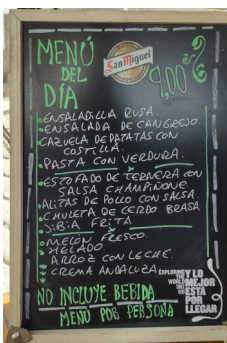 MENÚ
DEL
DÍA
San Miguel
9,00€
ENSALADILLA RUSA
ENSALADA DE CANGREJO.
CAZUELA DE PATATAS CON
COSTILLA.
PASTA CON VERDURA.
ESTOFADO DE TERNERA CON
SALSA CHAMPIÑONE
ALITAS DE POLLO CON SALSA.
CHULETA DE CERDO BRASA
SIBIA FRITA
MELÓN FRESCO.
HELADO
ARROZ CON LECHE.
CREMA ANDALUZA
EXPLORING
THE
WORLD
SINCE
Y LO
MEJOR
ESTÁ
POR
LLEGAR
NO INCLUYE BEBIDA
MENÚ POR PERSONA